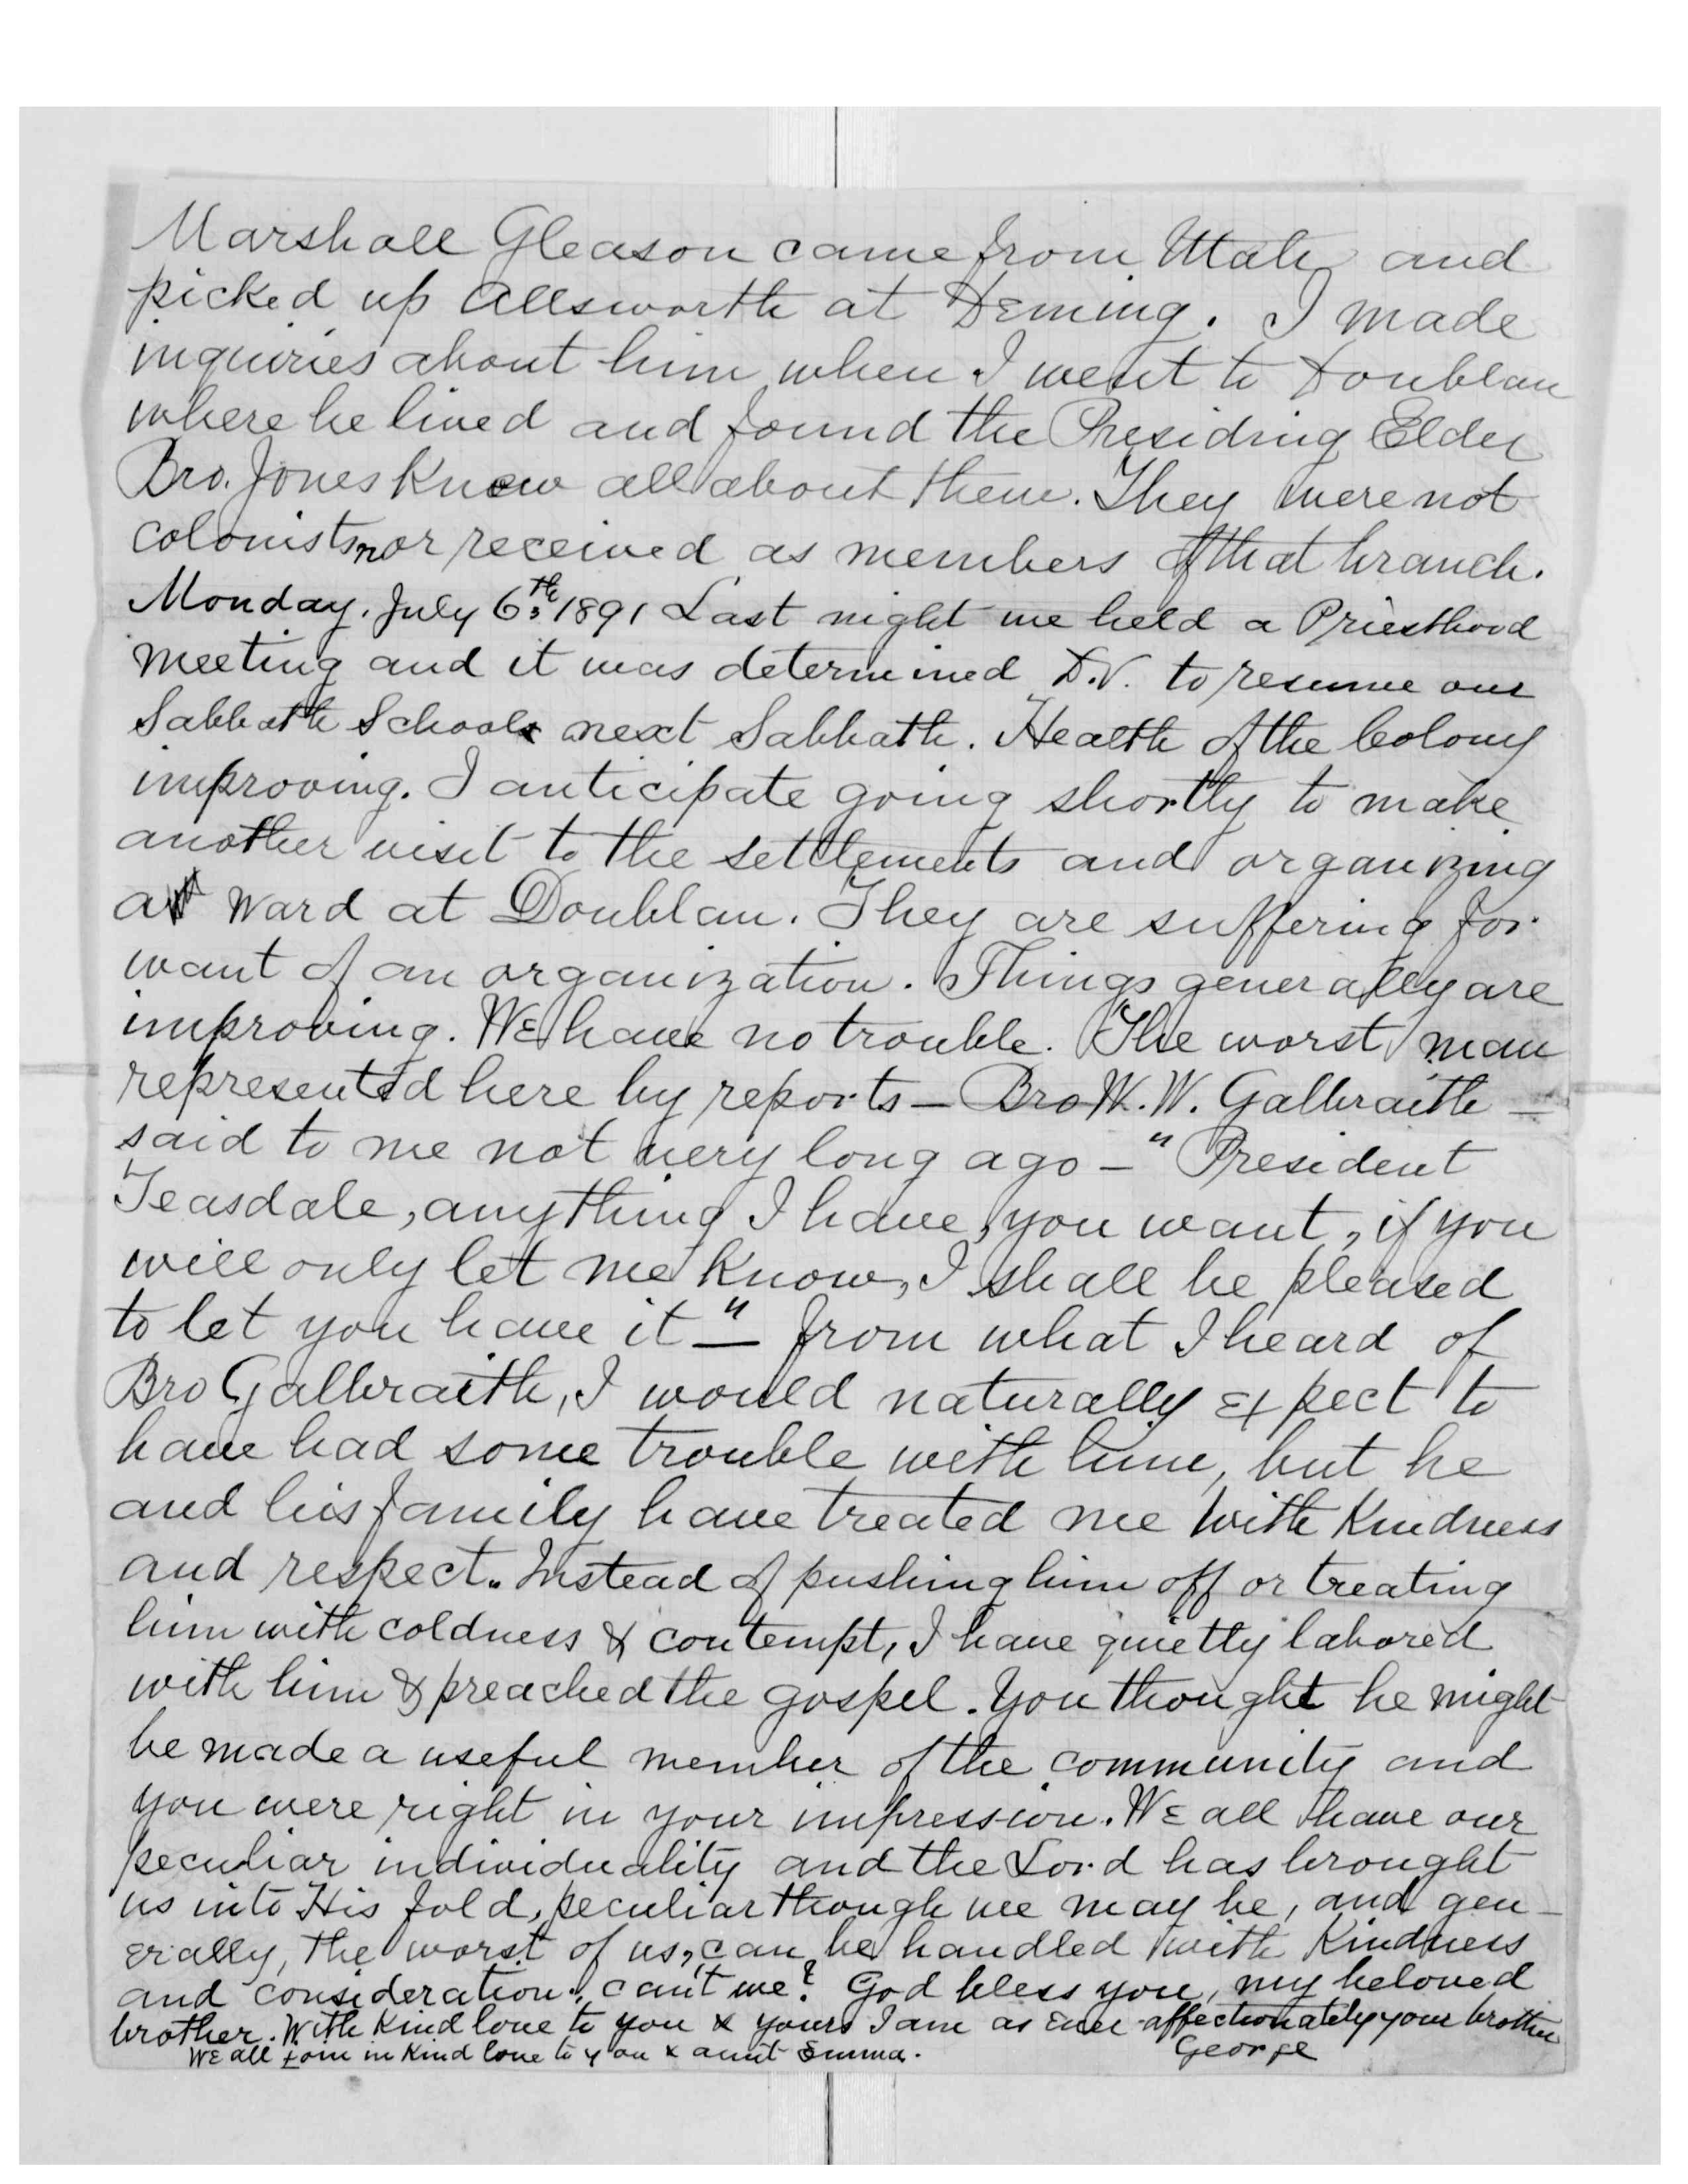 Marshall Gleason came from Utah and
picked up Allsworth at Deming. I made
inquiries about him when I went to Doublan
where he lived and found the Presiding Elder
Bro. Jones knew all about them. They were not
colonists nor received as members of that branch.
Monday, July 6th 1891 Last night we held a Priesthood
meeting and it was determined D.V. to resume our
Sabbath Schools next Sabbath. Health of the Colony
improving. I anticipate going shortly to make
another visit to the settlements and organizing
a Ward at Doublan. They are suffering for
want of an organization. Things generally are
improving. We have no trouble. The worst man
represented here by reports — Bro W. W. Galbraith —
said to me not very long ago — "President
Teasdale, anything I have, you want, if you
will only let me know, I shall be pleased
to let you have it" — from what I heard of
Bro Galbraith, I would naturally expect to
have had some trouble with him, but he
and his family have treated me with kindness
and respect. Instead of pushing him off or treating
him with coldness & contempt, I have quietly labored
with him & preached the gospel. You thought he might
be made a useful member of the community and
you were right in your impression. We all have our
peculiar individuality and the Lord has brought
us into His fold, peculiar though we may be, and gen-
erally, the worst of us, can be handled with kindness
and consideration, can't we? God bless you, my beloved
brother. With kind love to you & yours I am as ever affectionately your brother
George
We all join in kind love to you & aunt Emma.